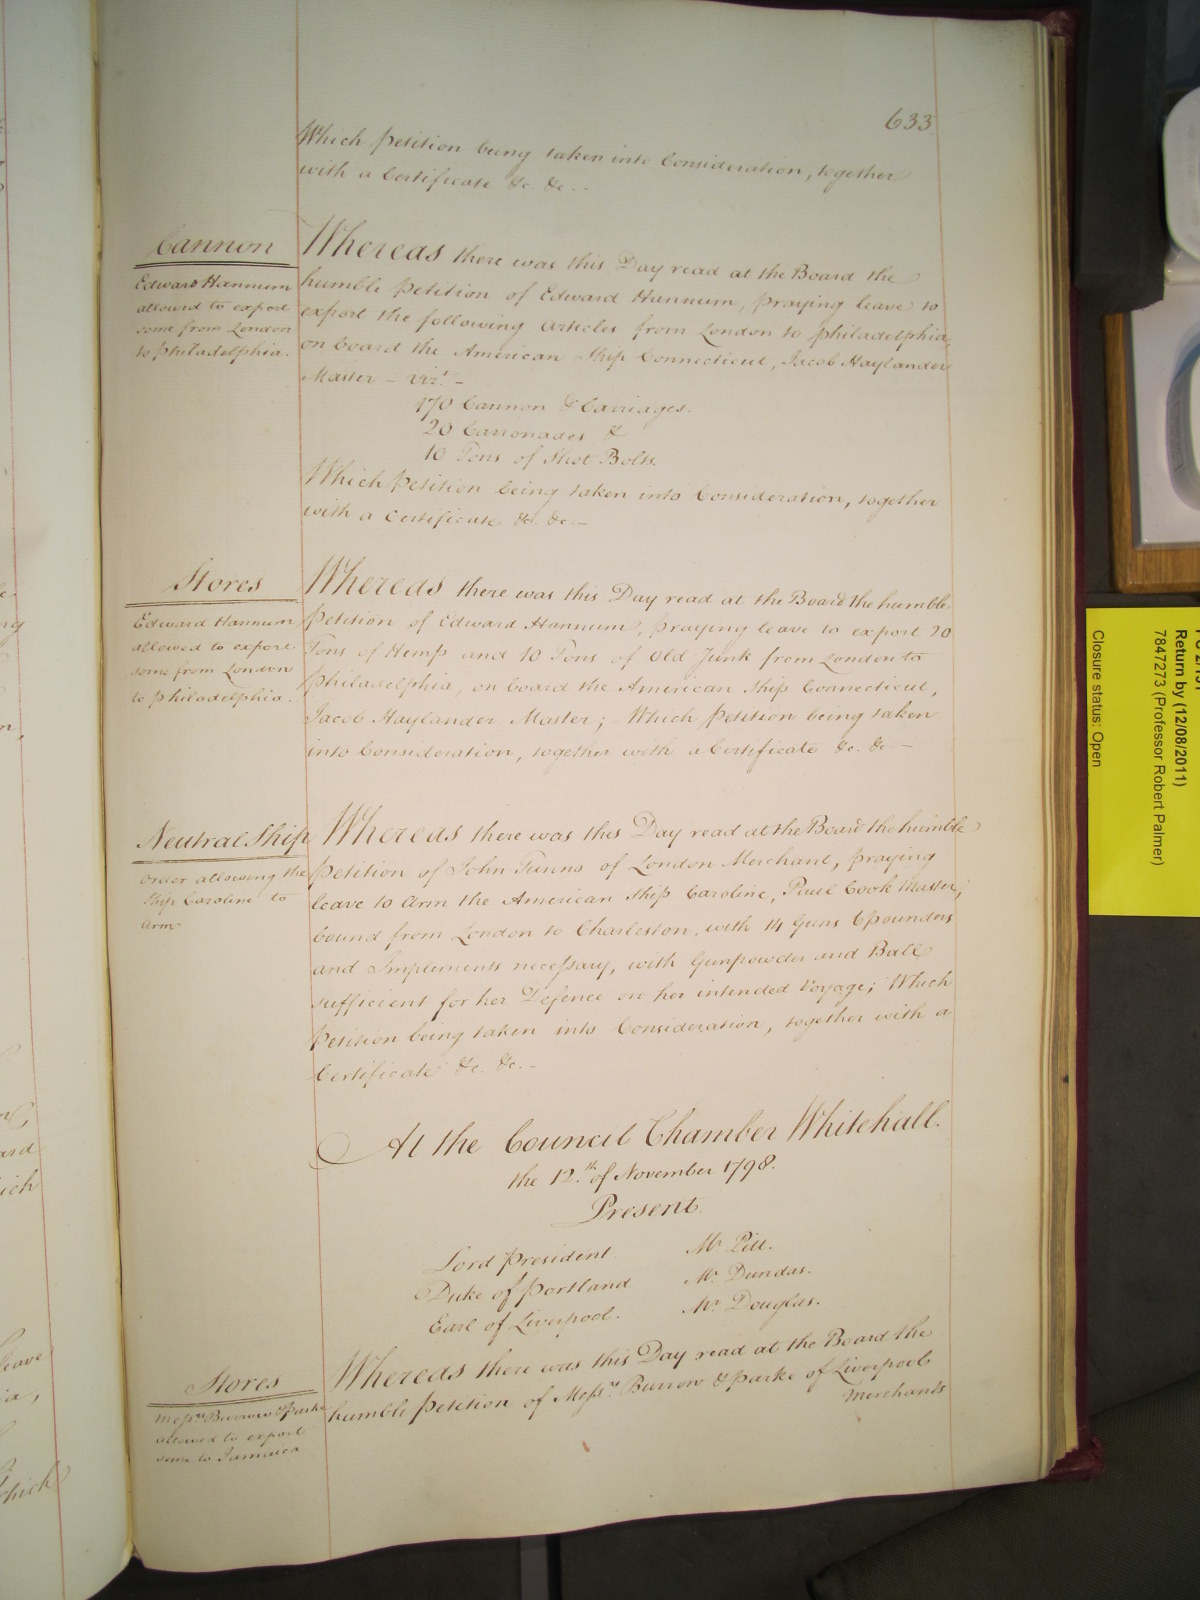 633
Which Petition being taken into Consideration, together
with a Certificate &c. &c. . .
Cannon
Edward Hannum
allowed to export
some from London
to Philadelphia.
Whereas there was this Day read at the Board the
humble Petition of Edward Hannum, praying leave to
export the following Articles from London to Philadelphia,
on board the American Ship Connecticut, Jacob Haylander
Master – vizt. –
170 Cannon & Carriages.
20 Carronades &
10 Tons of Shot Bolts.
Which Petition being taken into Consideration, together
with a Certificate &c. &c. —
Stores
Edward Hannum
allowed to export
some from London
to Philadelphia.
Whereas there was this Day read at the Board the humble
Petition of Edward Hannum, praying leave to export 20
Tons of Hemp and 10 Tons of Old Junk from London to
Philadelphia, on board the American Ship Connecticut,
Jacob Haylander Master; Which Petition being taken
into Consideration, together with a Certificate &c. &c —
Neutral Ship
Order allowing the
Ship Caroline to
Arm
Whereas there was this Day read at the Board the humble
Petition of John Tunno of London Merchant, praying
leave to Arm the American Ship Caroline, Paul Cook Master,
bound from London to Charleston, with 14 Guns 6 pounders
and Implements necessary, with Gunpowder and Ball
sufficient for her Defence on her intended Voyage; Which
Petition being taken into Consideration, together with a
Certificate &c. &c. –
At the Council Chamber Whitehall.
the 12.th of November 1798.
Present.
Lord President Mr Pitt.
Duke of Portland Mr. Dundas.
Earl of Liverpool. Mr Douglas.
Stores
Messrs Burrow & Parke
allowed to export
some to Jamaica
Whereas there was this Day read at the Board the
humble Petition of Messrs Burrow & Parke of Liverpool
Merchants
Return by (12/08/2011)
7847273 (Professor Robert Palmer)
Closure status: Open
leave
which